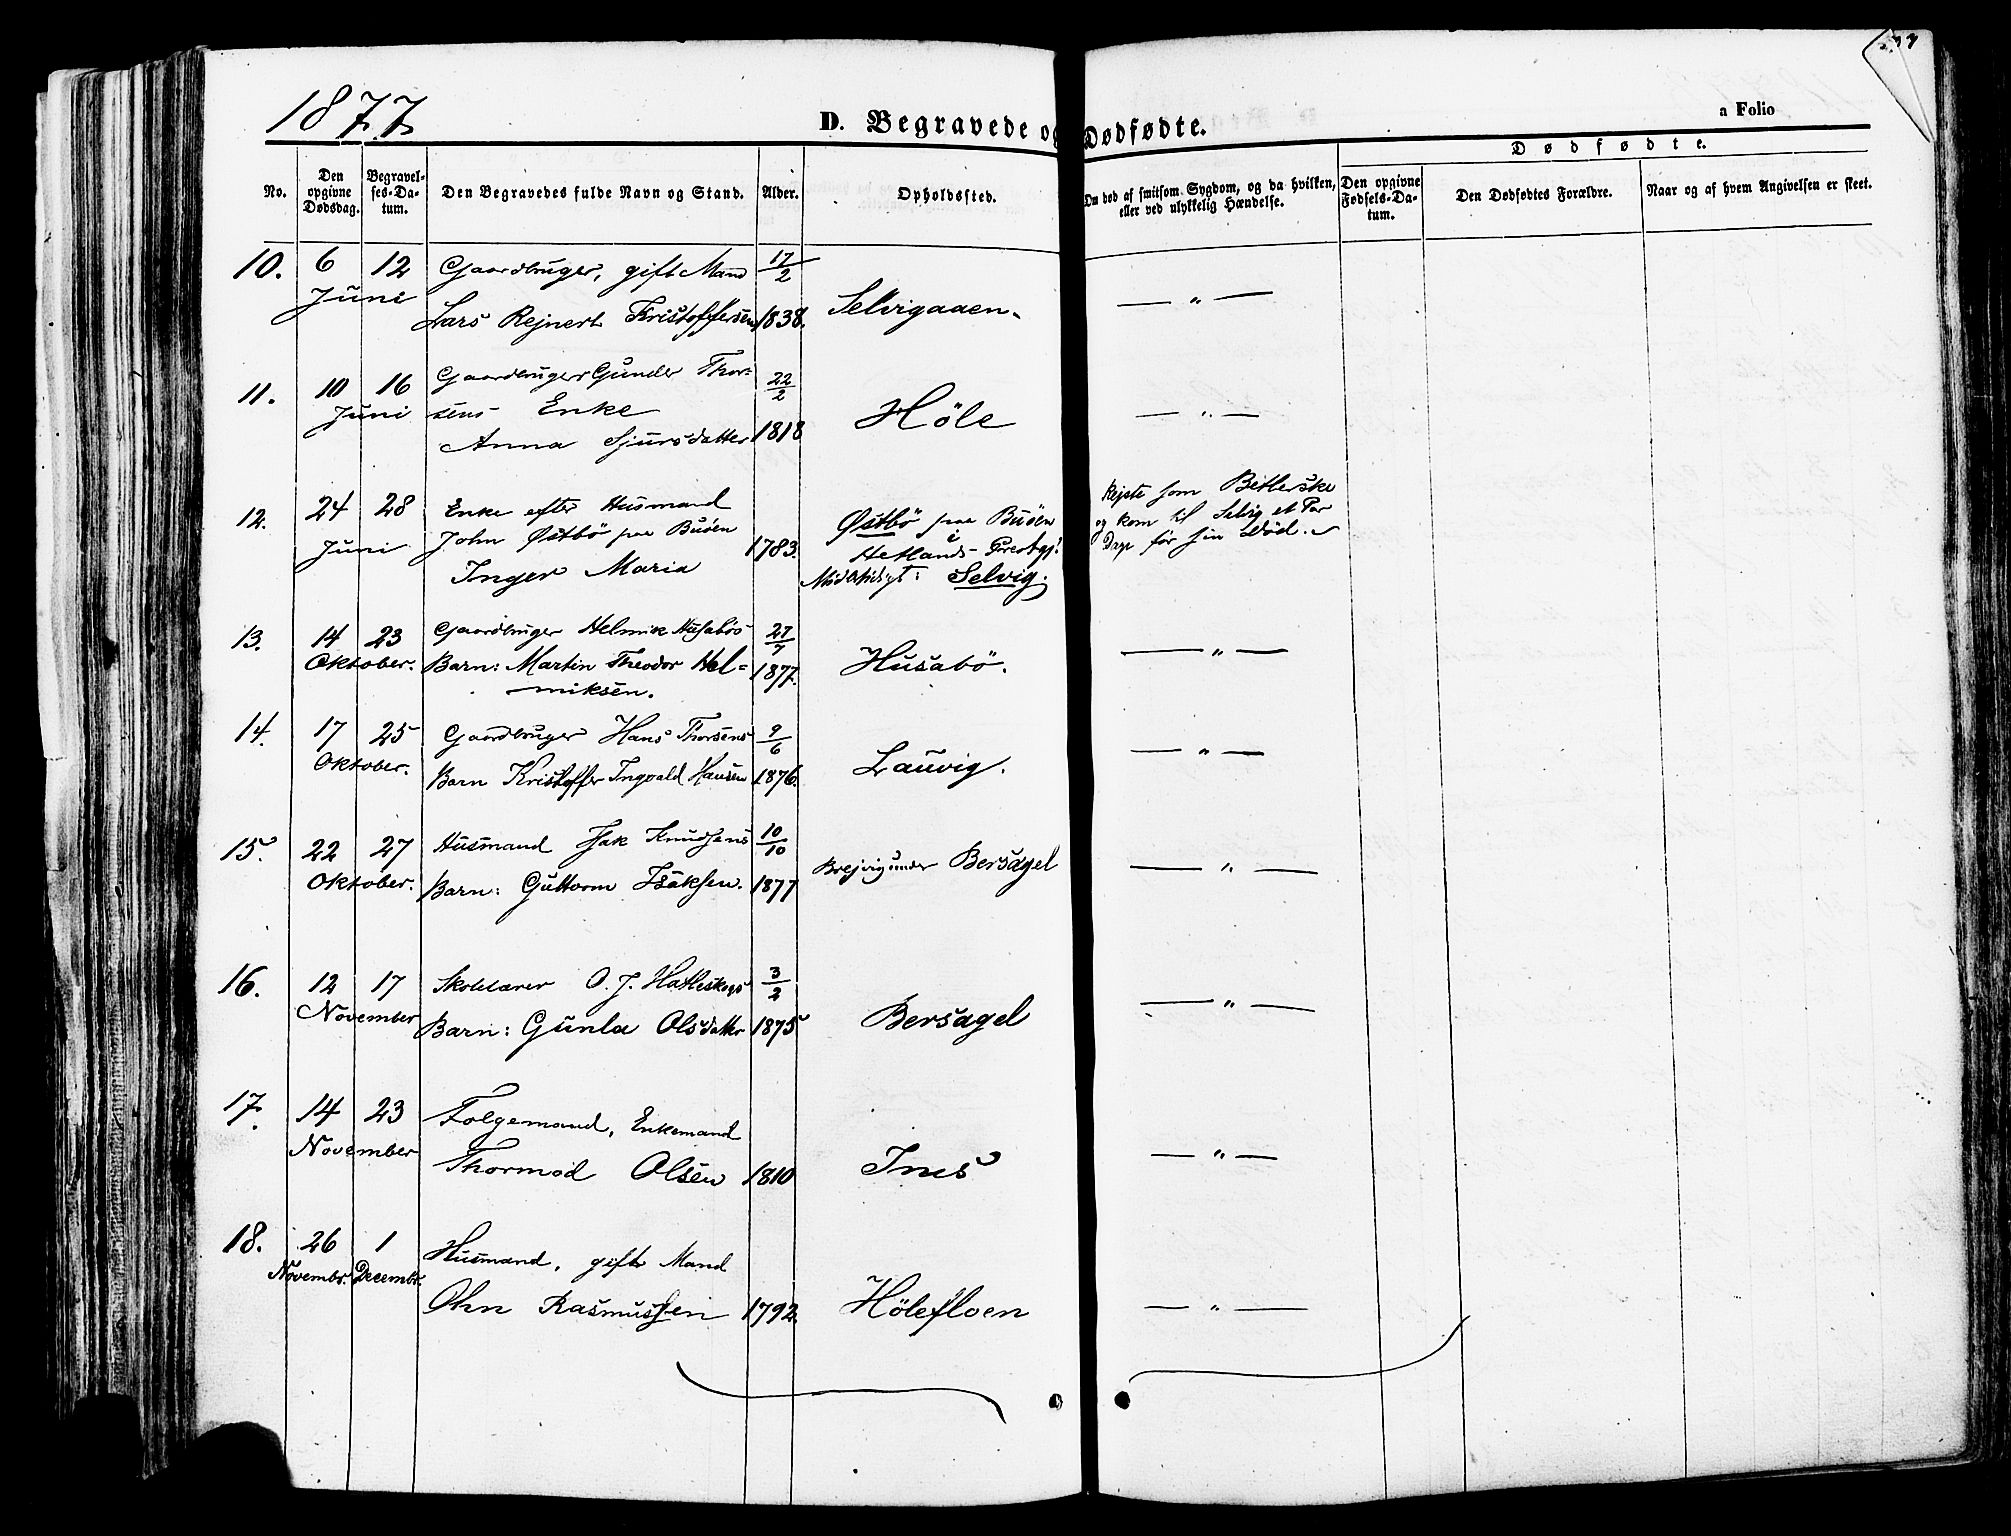 1877
D. Begravede og Dødfødte.
a Folio
No.
Den opgivne Dødsdag.
Begravelses-Datum.
Den Begravedes fulde Navn og Stand.
Alder.
Opholdssted.
Om død af smitsom Sygdom, og da hvilken, eller ved ulykkelig Hændelse.
Dødfødte.
Den opgivne Fødsels-Datum.
Den Dødfødtes Forældre.
Naar og af hvem Angivelsen er skeet.
10. 6 12 Gaardbruger, gift Mand 17/2
Juni Lars Rejnert Kristoffersen 1838. Selvigaaen. — " —
11. 10 16 Gaardbruger Gunder Thor= 22/2
Juni sens Enke Höle — " —
Anna Sjursdatter 1818
12. 24 28 Enke efter Husmand Østbö paa Buöen Rejste som Betlerske
Juni John Østbö paa Buöen 1783. i og kom til Selvig et Par
Inger Maria Hetlands- Præstegj. Dage før sin Død.
Midlertidigt: Selvig.
13. 14 23 Gaardbruger Helmik Husabös 27/7
Oktober. Barn: Martin Theodor Hel= 1877. Husabö. — " —
miksen.
14. 17 25 Gaardbruger Hans Thorsens 9/6
Oktober. Barn Kristoffer Ingvald Hansen 1876. Lauvig. — " —
15. 22 27 Husmand Isak Knudsens 10/10
Oktober. Barn: Guttorm Isaksen. 1877 Brejvig under Bersagel — " —
16. 12 17 Skolelærer O. J. Hatleskogs 3/2
November Barn: Gunla Olsdatter 1875 Bersagel — " —
17. 14 23 Folgemand, Enkemand
November Thormod Olsen 1810 Ims — " —
18. 26 1 Husmand, gifte Mand
Novembr. Decembr. Ohn Rasmussen 1792. Hölefloen — " —